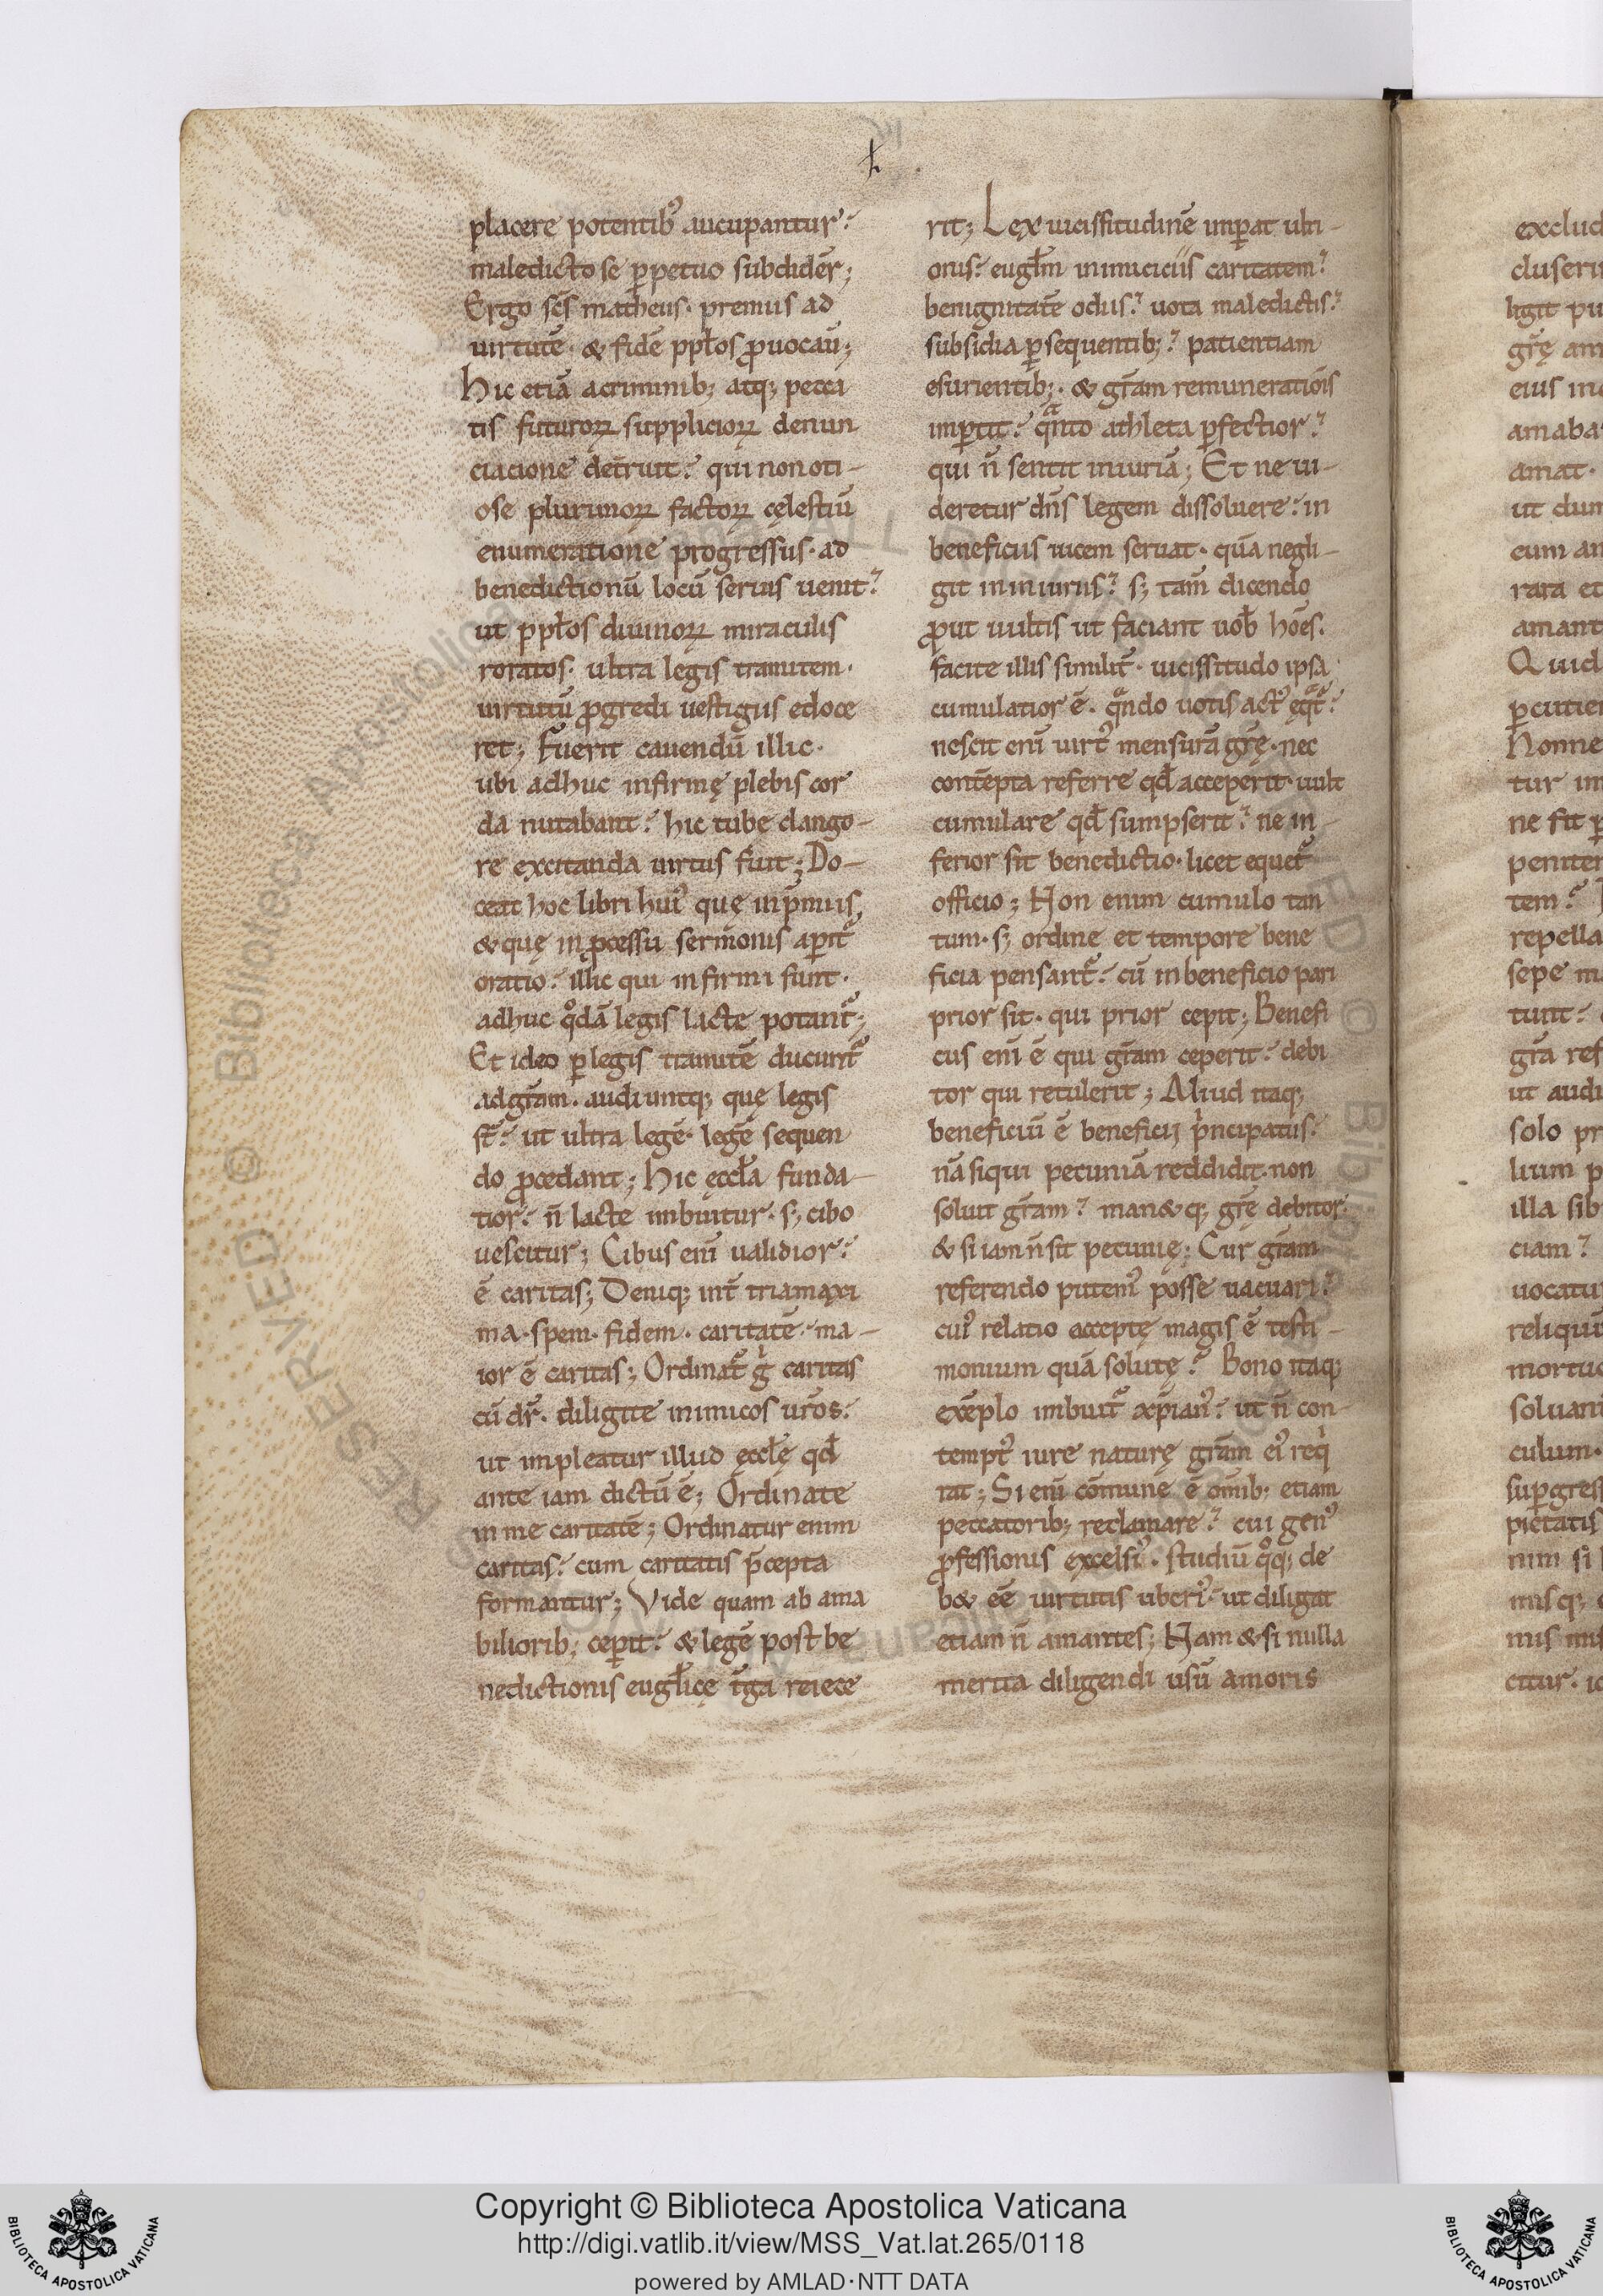 placere potentib᷒ aucupantur.
maledicto se ꝑpetuo subdidēr;
Ergo sc̄s matheus· premiis ad
uirtutē· & fidē ppl̄os ꝓuocau̅;
Hic etiā a criminib; atq; pecca
tis futuroꝝ supplicioꝝ denun
ciacione deterruit: qui non oti-
ose plurimoꝝ factoꝝ cęlestiū
enumeratione progressus· ad
benedictionū locū serius uenit:
ut ppl̄os diuinoꝝ miraculis
roratos· ultra legis tramitem·
uirtutū ꝓgredi uestigiis edoce
ret; Fuerit cauendū illic·
ubi adhuc infirmę plebis cor
da nutabant: hic tube clango-
re excitanda uirtus fuit; Do-
ceat hoc libri hui᷒ que inp̄miis,
& quę in ꝓcessu sermonis aꝑit᷑
oratio: illic qui infirmi sunt·
adhuc qͦdā legis lacte potant᷑;
Et ideo ꝑ legis tramitē ducunt᷑
ad gr̄am· audiuntq; quę legis
st̄: ut ultra legē· legē sequen
do ꝓcedant; Hic ęccl̄a funda-
tior: n̄ lacte imbuitur· s; cibo
uescitur; Cibus enī ualidior:
ē caritas; Deniq; int̄ tria maxi
ma· spem· fidem· caritatē· ma-
ior ē caritas; Ordinat᷑ gͥ caritas
cū dr̄· diligite inimicos ur̄os:
ut impleatur illud ęccl̄ę qd̄
ante iam dictū ē; Ordinate
in me caritatē; Ordinatur enim
caritas: cum caritatis p̄cepta
formantur; Vide quam ab ama
biliorib; ceꝑit: & legē post be
nedictionis eugl̄icę t̄ga reiece
rit; Lex uicissitudinē imꝑat ulti-
onis: eugl̄m inimiciciis caritatem:
benignitatē odiis: uota maledictis:
subsidia ꝑsequentib;: patientiam
esurientib;· & gr̄am remuneratiōis
imꝑtit: qᷓnto athleta ꝑfectior:
qui n̄ sentit iniuriā; Et ne ui-
deretur dn̄s legem dissoluere: in
beneficiis uicem seruat· quā negli-
git in iniuriis: s; tam̄ dicendo
ꝓut uultis ut faciant uob̄ hoēs·
facite illis similit᷑· uicissitudo ipsa
cumulatior ē· qᷓndo uotis act᷒ ęqͣt᷑:
nescit enī uirt᷒ mensurā gr̄ę· nec
contēpta referre qd̄ acceperit· uult
cumulare qd̄ sumpserit: ne in-
ferior sit benedictio· licet equet᷑
officio; Non enim cumulo tan
tum· s; ordine et tempore bene
ficia pensant᷑: cū in beneficio pari
prior sit· qui prior cepit; Benefi
cus enī ē qui gr̄am ceperit: debi
tor qui retulerit; Aliud itaq;
beneficiū ē beneficij pͥncipatus:
nā siqui pecuniā reddidit· non
soluit gr̄am: man&q; gr̄ę debitor·
& si iam n̄ sit pecunię; Cur gr̄am
referendo putem᷒ posse uacuari:
cui᷒ relatio acceptę magis ē testi-
monium quā solutę: Bono itaq;
exēplo imbuit᷑ xp̄ian᷒: ut n̄ con-
tempt᷒ iure naturę gr̄am ei᷒ reqͥ
rat; Si enī cōmune ē om̄ib; etiam
peccatorib; reclamare: cui gen᷒
ꝓfessionis excelsi᷒· studiū qͦq; de
b& eē uirtutis uberi᷒· ut diligat
etiam n̄ amantes; Nam & si nulla
merita diligendi usū amoris
Copyright © Biblioteca Apostolica Vaticana
http://digi.vatlib.it/view/MSS_Vat.lat.265/0118
powered by AMLAD·NTT DATA
BIBLIOTECA APOSTOLICA VATICANA
BIBLIOTECA APOSTOLICA VATICANA